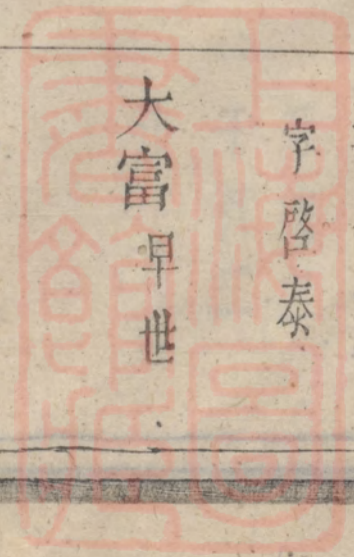 字啓泰
大富早世